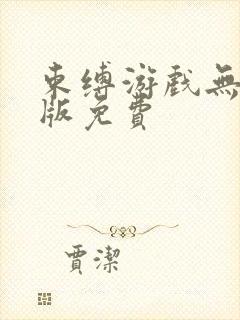 束缚游戏無
版免費
賈潔